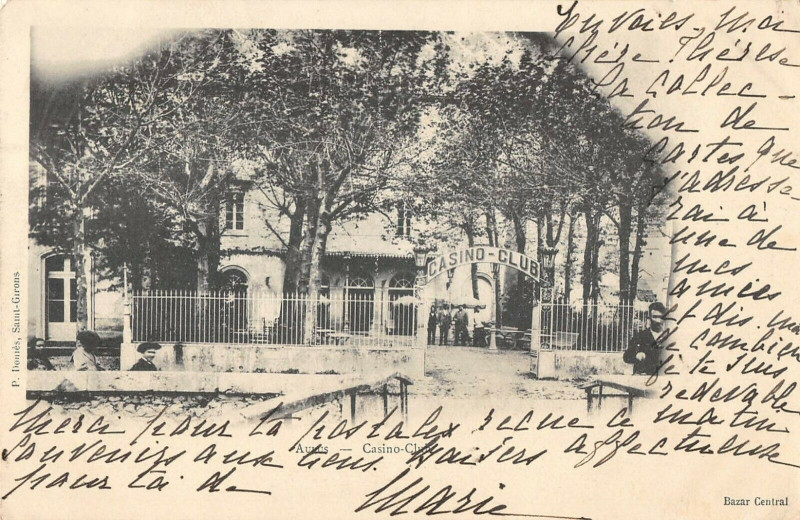 Envoies, moi
chère Thérèse
la collec -
tion de
cartes que
j'adresse
rai à
une de
mes
amies
et dis moi
de combien
je te suis
redevable
CASINO-CLUB
P. Domès, Saint-Girons
Merci pour ta postale reçue ce matin
Aulus — Casino-Club
Souvenirs aux tiens, baisers affectueuse
pour toi de
Marie
Bazar Central